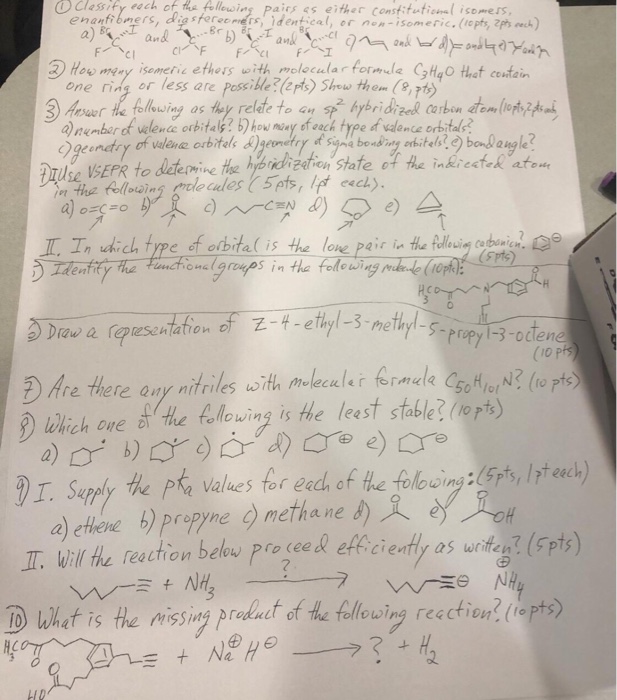 ① Classify each of the following pairs as either constitutional isomers,
enantiomers, diastereomers, identical, or non-isomeric. (10pts, 2pts each)
a) Br I and I Br b) Br I and Br Cl c) and d) and e) and
F Cl Cl F F Cl F I
② How many isomeric ethers with molecular formula C3H4O that contain
one ring or less are possible? (2pts) Show them (8, pts)
③ Answer the following as they relate to an sp² hybridized carbon atom (10pts, 2pts each)
a) number of valence orbitals? b) how many of each type of valence orbitals?
c) geometry of valence orbitals d) geometry of sigma bonding orbitals? e) bond angle?
I Use VSEPR to determine the hybridization state of the indicated atom
in the following molecules (5pts, 1pt each).
a) O=C=O b) O c) C≡N d) O e)
II. In which type of orbital is the lone pair in the following carbanion? ⊖
(5pts)
Identify the functional groups in the following molecule (10pts):
H3CO O N O H
Draw a representation of Z-4-ethyl-3-methyl-5-propyl-3-octene
(10 pts)
7) Are there any nitriles with molecular formula C50H101N? (10 pts)
8) Which one of the following is the least stable? (10 pts)
a) b) c) d) ⊕ e) ⊖
9) I. Supply the pKa values for each of the following: (5pts, 1pt each)
a) ethene b) propyne c) methane d) O e) O OH
II. Will the reaction below proceed efficiently as written? (5pts)
+ NH3 ? ⟶ ⊖ ⊕NH4
10) What is the missing product of the following reaction? (10pts)
H3CO O O HO + Na⊕ H⊖ ⟶ ? + H2